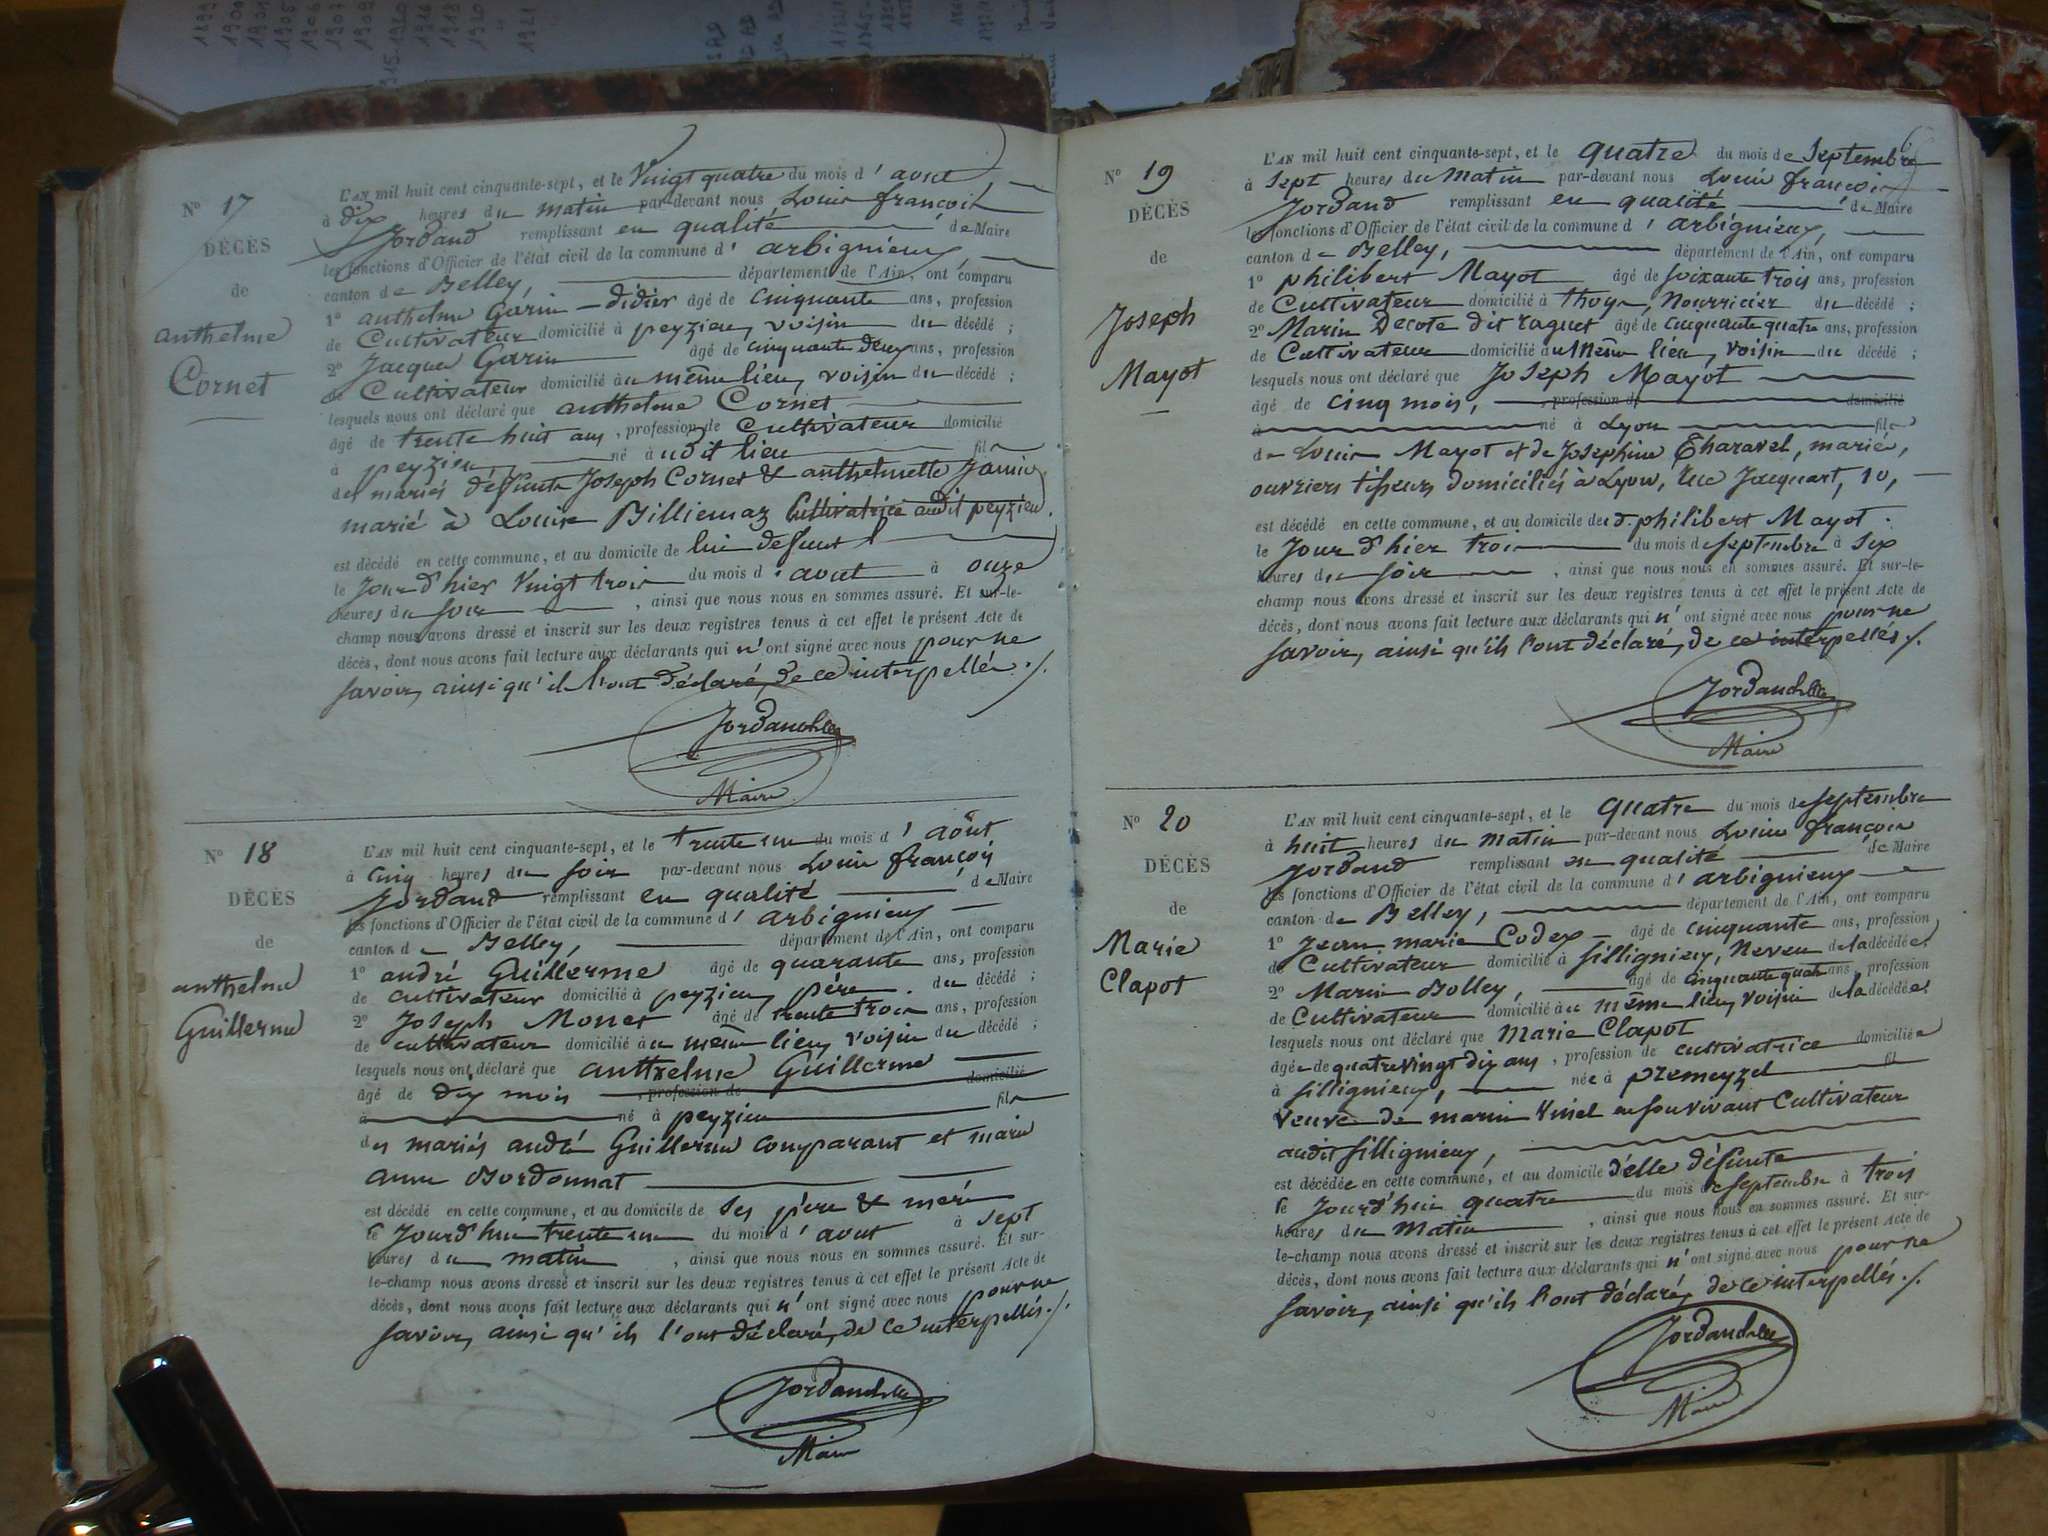 1899
1900
1901
1905
1906
1907
1909
1915-1920
1916
1918
1920
1921
N° 17
DÉCÈS
de
anthelme
Cornet
L'AN mil huit cent cinquante-sept, et le Vingt quatre du mois d' aout
à dix heures du matin par-devant nous Louis françois
Jordand remplissant en qualité de Maire
les fonctions d'Officier de l'état civil de la commune d' arbignieu,
canton de Belley, département de l'Ain, ont comparu
1° anthelme Garin-didier âgé de cinquante ans, profession
de Cultivateur domicilié à peyzieu, voisin du décédé ;
2° Jacque Garin âgé de cinquante deux ans, profession
de Cultivateur domicilié au même lieu, voisin du décédé ;
lesquels nous ont déclaré que anthelme Cornet
âgé de trente huit ans, profession de Cultivateur domicilié
à peyzieu né audit lieu fils
des mariés défunts Joseph Cornet & anthelmette
marié à Louise Billiemaz Cultivatrice audit peyzieu.
est décédé en cette commune, et au domicile de lui defunt
le Jour d'hier Vingt trois du mois d' aout à onze
heures du soir, ainsi que nous nous en sommes assuré. Et sur-le-
champ nous avons dressé et inscrit sur les deux registres tenus à cet effet le présent Acte de
décès, dont nous avons fait lecture aux déclarants qui n'ont signé avec nous pour ne
savoir, ainsi qu'il l'ont déclaré, de ce interpellés ./.
Maire
N° 18
DÉCÈS
de
anthelme
Guillerme
L'AN mil huit cent cinquante-sept, et le trente un du mois d' aôut
à Cinq heures du soir par-devant nous Louis françois
Jordand remplissant en qualité de Maire
les fonctions d'Officier de l'état civil de la commune d' arbignieu
canton de Belley, département de l'Ain, ont comparu
1° andré Guillerme âgé de quarante ans, profession
de cultivateur domicilié à peyzieu, père du décédé ;
2° Joseph Monet âgé de trente trois ans, profession
de cultivateur domicilié au même lieu, voisin du décédé ;
lesquels nous ont déclaré que anthelme Guillerme
âgé de dix mois, profession de domicilié
à né à peyzieu fils
des mariés andré Guillerme comparant et marie
anne Bordonnat
est décédé en cette commune, et au domicile de ses père & mère
le Jourd'hui trente un du mois d' aout à sept
heures du matin, ainsi que nous nous en sommes assuré. Et sur-
le-champ nous avons dressé et inscrit sur les deux registres tenus à cet effet le présent Acte de
décès, dont nous avons fait lecture aux déclarants qui n'ont signé avec nous pour ne
savoir, ainsi qu'ils l'ont déclaré, de ce interpellés ./.
Maire
N° 19
DÉCÈS
de
Joseph
Mayot
L'AN mil huit cent cinquante-sept, et le quatre du mois de Septembre
à Sept heures du Matin par-devant nous Louis françois
Jordand remplissant en qualité de Maire
les fonctions d'Officier de l'état civil de la commune d' arbignieu,
canton de Belley, département de l'Ain, ont comparu
1° philibert Mayot âgé de soixante trois ans, profession
de Cultivateur domicilié à thoys, Nourricier du décédé ;
2° Marin Decote dit raquet âgé de cinquante quatre ans, profession
de Cultivateur domicilié au même lieu, voisin du décédé ;
lesquels nous ont déclaré que Joseph Mayot
âgé de cinq mois, profession de domicilié
à né à Lyon fils
de Louis Mayot et de Josephine Charavel, mariés,
ouvriers tisseurs domiciliés à Lyon, Rue Jacquart, 10,
est décédé en cette commune, et au domicile dud. philibert Mayot.
le Jour d'hier trois du mois de septembre à six
heures du soir, ainsi que nous nous en sommes assuré. Et sur-le-
champ nous avons dressé et inscrit sur les deux registres tenus à cet effet le présent Acte de
décès, dont nous avons fait lecture aux déclarants qui n'ont signé avec nous pour ne
savoir, ainsi qu'ils l'ont déclaré, de ce interpellés ./.
Maire
N° 20
DÉCÈS
de
Marie
Clapot
L'AN mil huit cent cinquante-sept, et le quatre du mois de septembre
à huit heures du matin par-devant nous Louis françois
Jordand remplissant en qualité de Maire
les fonctions d'Officier de l'état civil de la commune d' arbignieu
canton de Belley, département de l'Ain, ont comparu
1° Jean marie Codex âgé de cinquante ans, profession
de Cultivateur domicilié à sillignieu, Neveu de la décédée ;
2° Marin Bolley, âgé de cinquante quatre ans, profession
de Cultivateur domicilié au même lieu, voisin de la décédée ;
lesquels nous ont déclaré que Marie Clapot
âgée de quatre vingt dix ans, profession de cultivatrice domiciliée
à sillignieu, née à premeyzel fil
veuve de marin en son vivant Cultivateur
audit sillignieu,
est décédée en cette commune, et au domicile d'elle défunte
le Jourd'hui quatre du mois de septembre à trois
heures du Matin, ainsi que nous nous en sommes assuré. Et sur-
le-champ nous avons dressé et inscrit sur les deux registres tenus à cet effet le présent Acte de
décès, dont nous avons fait lecture aux déclarants qui n'ont signé avec nous pour ne
savoir, ainsi qu'ils l'ont déclaré, de ce interpellés ./.
Maire